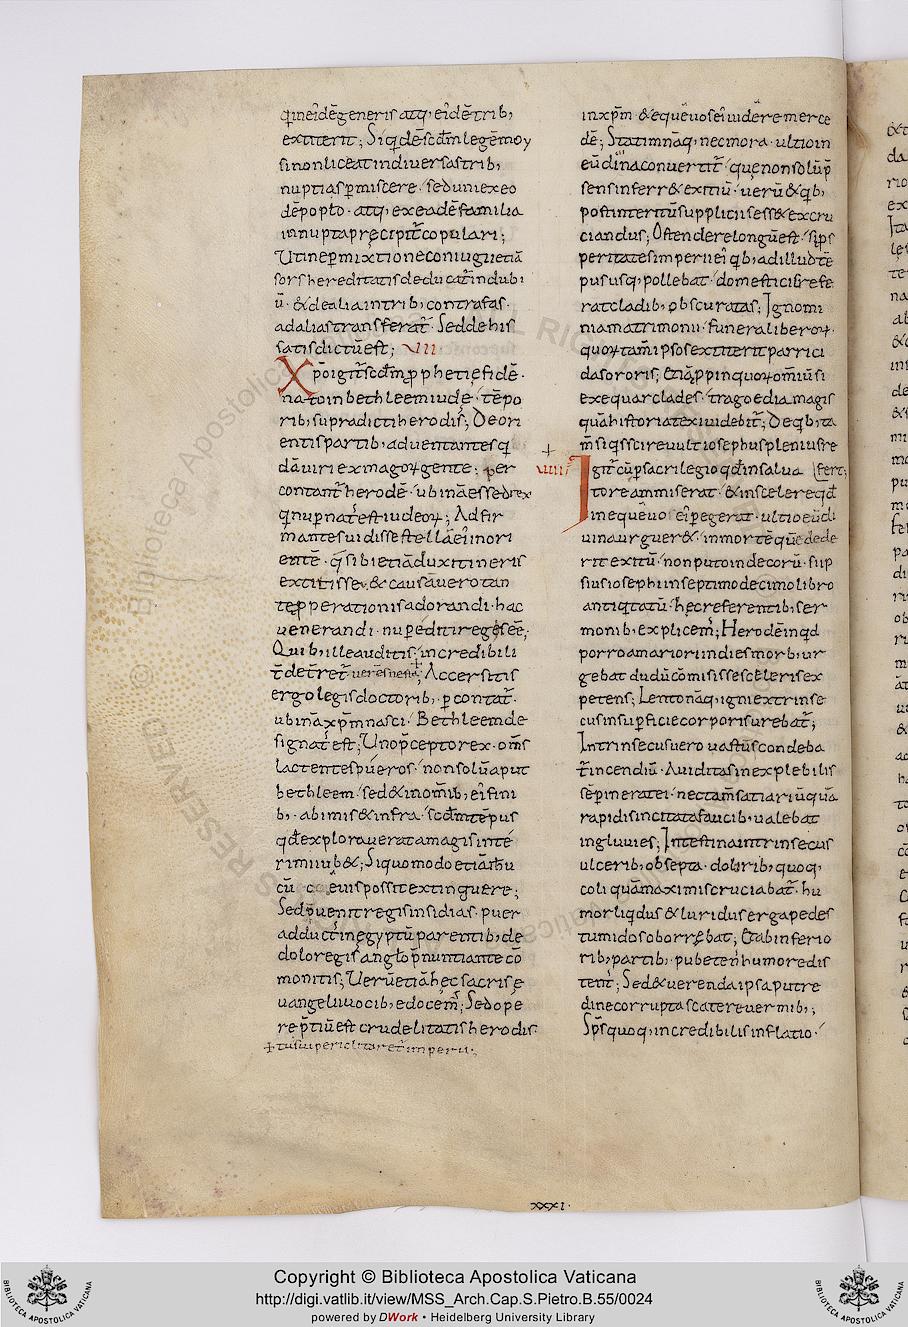 qui ei᷒dē generis atq; ei᷒dē trib;
extiterit; Siq᷒dē scd̄m legē moy
si non liceat in diversas trib;
nuptias p̄miscere· sed uni ex eo
dē poplo· atq; ex eadē familia
innupta p̨cipit̄ copulari;
Ut ne p̄mixtione coniugii etiā
sors hereditatis deducat̄ indubi
ū· & de alia in trib; contra fas·
ad alias transferat̄· Sed de his
satis dictū est; VIII
Xp̄o igit̄ scd̄m pphetię fidē·
nato in bethleem iudę· tēpo
rib; supradicti herodis; De ori
entis partib; adventantes q
dā viri ex magoꝝ gente; per
contant̄ herodē· ubinā esse d rex
q nup natus est iudeoꝝ; Ad fir
mantes vidisse stellā ei᷒ in ori
ente· q̄ sibi etiā dux itineris
extitisse· & causā vero tan
te pperationis adorandi· hac
venerandi· nup editi regęs eē;
Quib; ille auditis· incredibili
t̄ det̄ret̄ + Accersitis
ergo legis doctorib; pcontat̄·
ubinā xp̄m nasci· Bethleem de
signat̄ est; Uno p̄cepto rex· om̄s
lactentes pueros· non solū aput
bethleem· sed & in om̄ib; ei᷒ fini
b;· abimis & infra· scd̄m tēpus
qd̄ exploraverat a magis inte
rimi iub&; Si quomodo etiā ihū
cū coęvis possit extinguere;
Sed p̄venit regis insidias· puer
adductus in ęgyptū parentib; de
dolo regis anglo p̄nuntiante cō
monitis; Uerū etiā hęc sacris e
vangelii vocib; edocem̄; Sed ope
re p̄tiū est crudelitatis herodis
+ tū sui periclitaret̄ imperii;
in xp̄m & equevos ei᷒ videre merce
dē; Statim nāq; nec mora· ultio in
eū divina convertit̄· que non solū p̄
sens inferr& exitiū· verū & qb;
post interitū suppliciis ess& excru
ciandus; Ostendere longū est· sips
peritates imperii ei᷒ qb; ad illud tē
pus usq; pollebat· domesticis refe
rat cladib; obscuratas; Igno mi
nia matrimonii· funera liberoꝝ·
quoꝝ tam̄ ipsos extiterit parrici
da sororis; Etiā ppinquoꝝ om̄iū si
exequar clades· tragoedia magis
quā historia texi videbit̄; De qb; ta
m̄ siq᷒s scire vult iosephus plenius re
VIIII Igit̄ cū p sacrilegio qd̄ in salva fert;
tore ammiserat· & in scelere qd̄
in equevo ei᷒ pegerat· ultio eū di
vina urguer&· in mortē quē dede
rit exitū· non puto indecorū· sup
sius iosephi in septimo decimo libro
antiqtatū· hęc referentib; ser
monib; explicem̄; Herodē inqd
porro amarior in dies morb; ur
gebat dudū cōmisi ss̄e sceleris ex
petens; Lento nāq; igni extrinse
cus in supficie corporis urebat̄;
Intrinsecus vero vastus condeba
t̄ incendiū· Aviditas inexplebilis
sēp inerat ei· nec tam̄ satiari ūquā
rapidis incitata faucib; valebat
ingluvies; Intestina intrinsecus
ulcerib; obsepta· dolorib; quoq;
coli quā maximis cruciabat̄· hu
mor liqdus & luridus erga pedes
tumidos oborrebat; Et ab inferio
rib; partib;· pube tenus humore dis
tent̄; Sed & verenda ipsa putre
dine corrupta scaterevermib;;
Sp̄s quoq; incredibilis inflatio·
XXXI·
Copyright © Biblioteca Apostolica Vaticana
http://digi.vatlib.it/view/MSS_Arch.Cap.S.Pietro.B.55/0024
powered by DWork • Heidelberg University Library